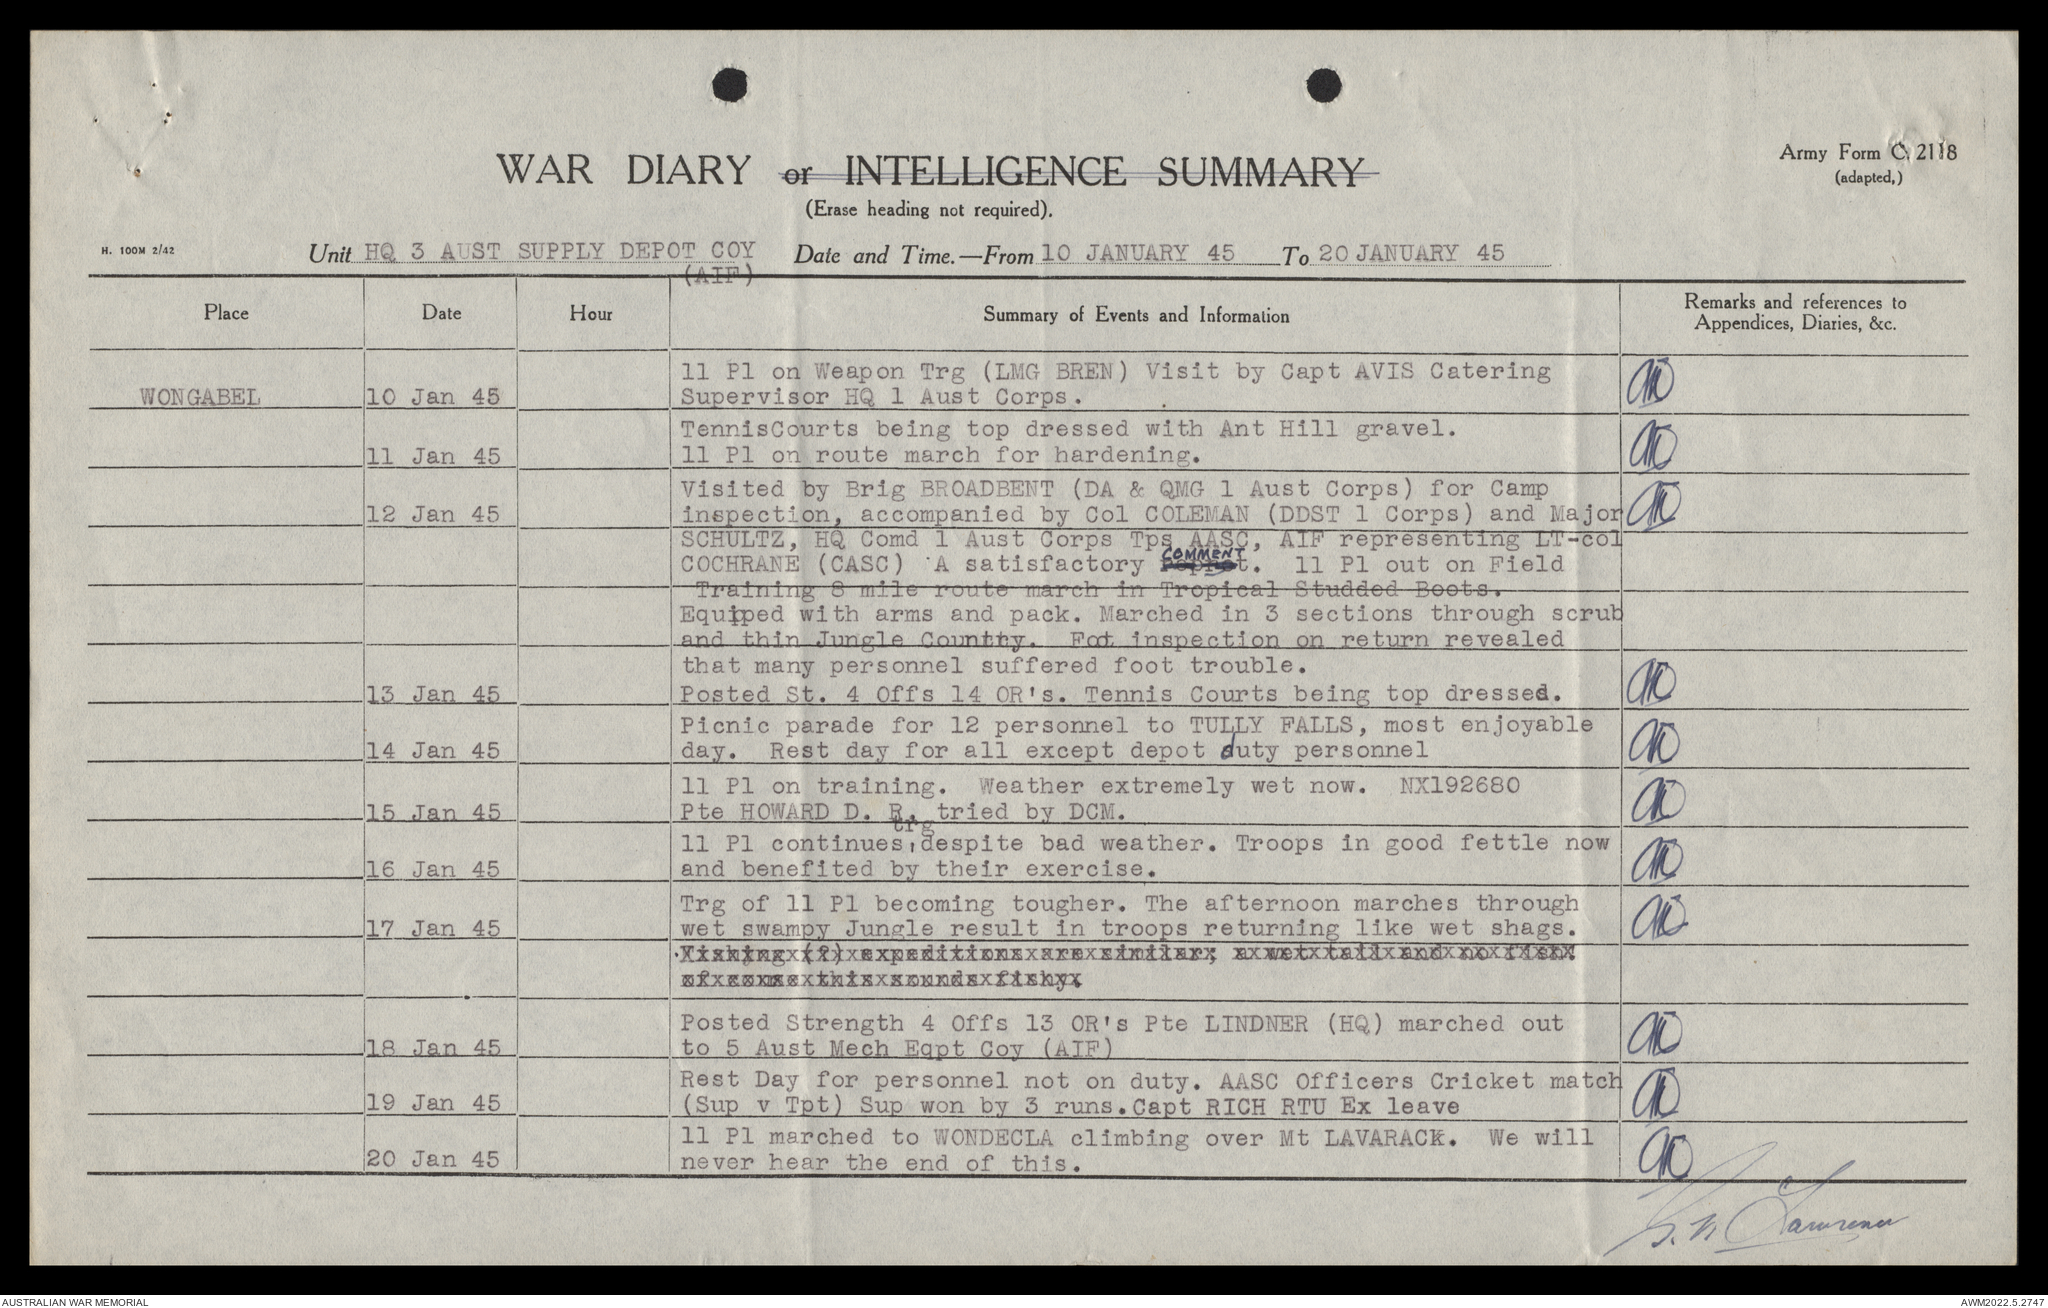 WAR DIARY or INTELLIGENCE SUMMARY
(Erase heading not required).
Army Form C. 2118
(adapted,)
H. 100M 2/42
Unit HQ 3 AUST SUPPLY DEPOT COY (AIF) Date and Time.—From 10 JANUARY 45 To 20 JANUARY 45
Place Date Hour Summary of Events and Information Remarks and references to Appendices, Diaries, &c.
11 Pl on Weapon Trg (LMG BREN) Visit by Capt AVIS Catering
WONGABEL 10 Jan 45 Supervisor HQ 1 Aust Corps.
TennisCourts being top dressed with Ant Hill gravel.
11 Jan 45 11 Pl on route march for hardening.
Visited by Brig BROADBENT (DA & QMG 1 Aust Corps) for Camp
12 Jan 45 inspection, accompanied by Col COLEMAN (DDST 1 Corps) and Major
SCHULTZ, HQ Comd 1 Aust Corps Tps AASC, AIF representing LT-col
COCHRANE (CASC) A satisfactory COMMENT. 11 Pl out on Field
Training 8 mile route march in Tropical Studded Boots.
Equiped with arms and pack. Marched in 3 sections through scrub
and thin Jungle Country. Foot inspection on return revealed
that many personnel suffered foot trouble.
13 Jan 45 Posted St. 4 Offs 14 OR's. Tennis Courts being top dressed.
Picnic parade for 12 personnel to TULLY FALLS, most enjoyable
14 Jan 45 day. Rest day for all except depot duty personnel
11 Pl on training. Weather extremely wet now. NX192680
15 Jan 45 Pte HOWARD D. R. tried by DCM.
11 Pl continues trg despite bad weather. Troops in good fettle now
16 Jan 45 and benefited by their exercise.
Trg of 11 Pl becoming tougher. The afternoon marches through
17 Jan 45 wet swampy Jungle result in troops returning like wet shags.
Fishing (?) expeditions are similar; a wet tail and no fish
of course this sounds fishy.
Posted Strength 4 Offs 13 OR's Pte LINDNER (HQ) marched out
18 Jan 45 to 5 Aust Mech Eqpt Coy (AIF)
Rest Day for personnel not on duty. AASC Officers Cricket match
19 Jan 45 (Sup v Tpt) Sup won by 3 runs.Capt RICH RTU Ex leave
11 Pl marched to WONDECLA climbing over Mt LAVARACK. We will
20 Jan 45 never hear the end of this.
Lawrence
AUSTRALIAN WAR MEMORIAL
AWM2022.5.2747